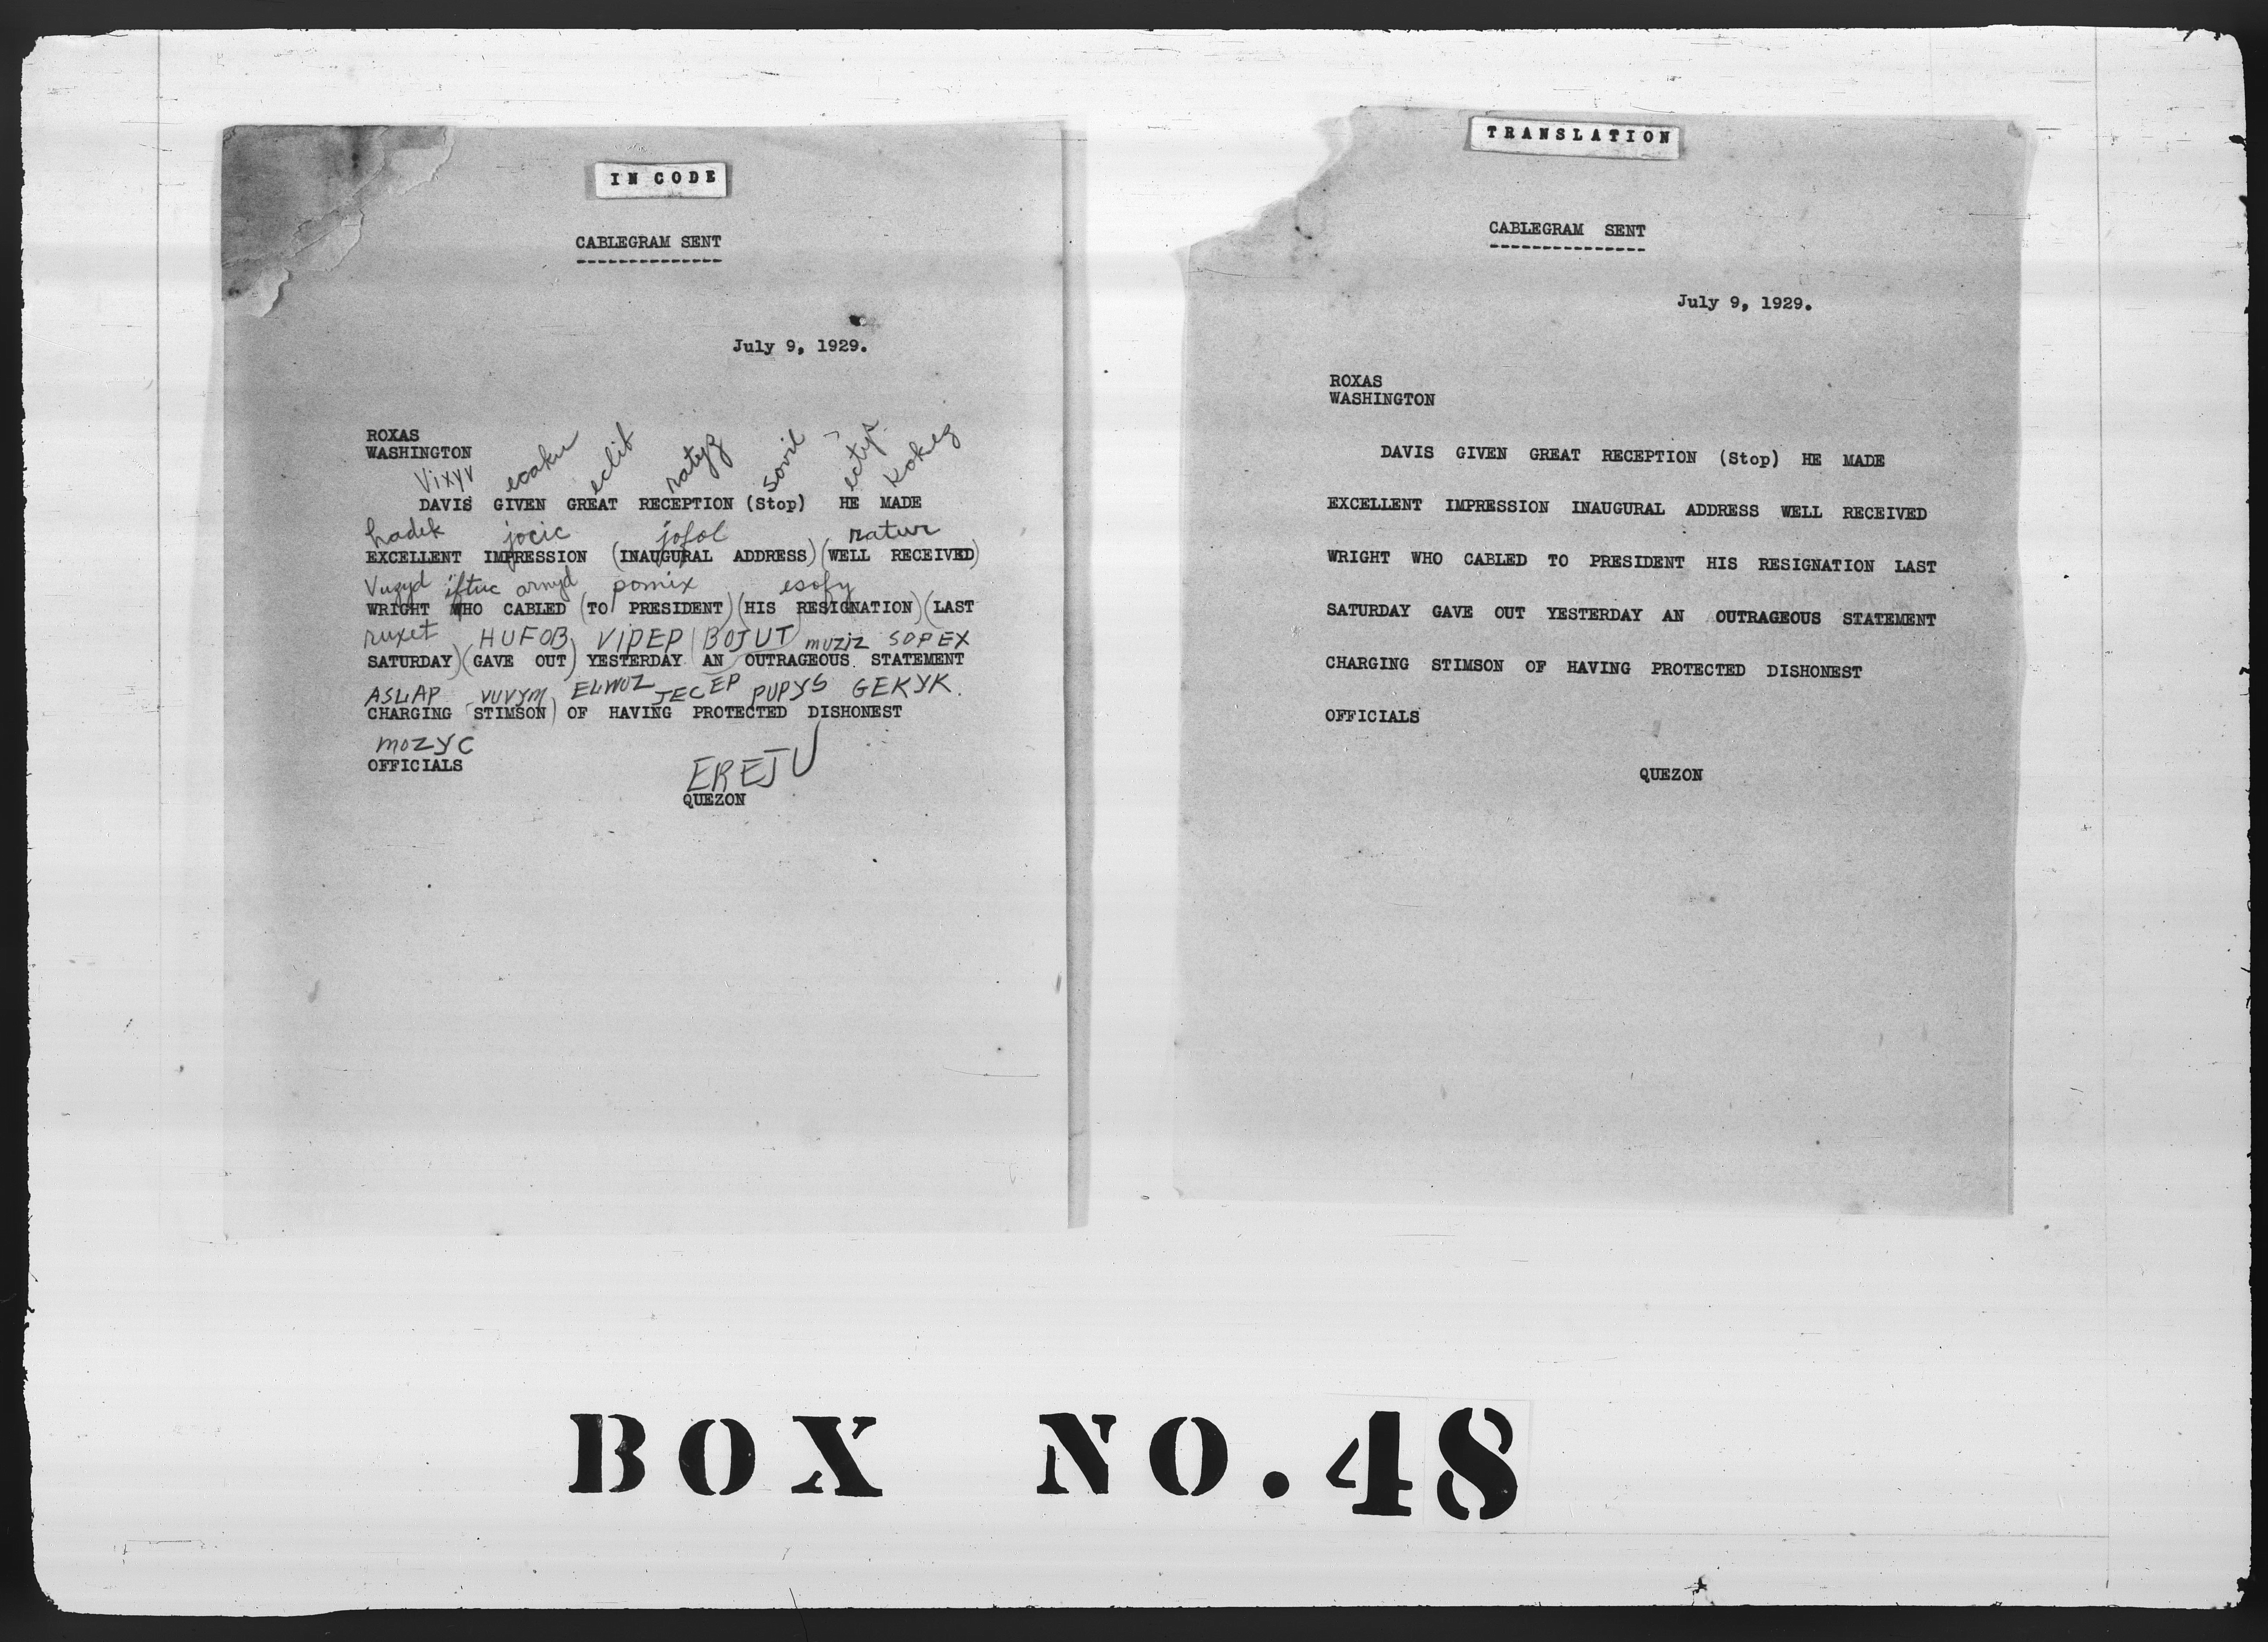 IN CODE
CABLEGRAM SENT
July 9, 1929.
ROXAS
WASHINGTON
Vixyv ecaku eclit ratyz sovil ectys kokez
DAVIS GIVEN GREAT RECEPTION (Stop) HE MADE
hadek jocic jofol ratur
EXCELLENT IMPRESSION (INAUGURAL ADDRESS) (WELL RECEIVED)
Vuzyd iftuc arnyd pomix esofy
WRIGHT WHO CABLED (TO PRESIDENT) (HIS RESIGNATION) (LAST
ruxet HUFOB VIPEP BOJUT MUZIZ SOPEX
SATURDAY) (GAVE OUT) YESTERDAY AN OUTRAGEOUS STATEMENT
ASLAP VUVYM ELWUZ JECEP PUPYS GEKYK.
CHARGING STIMSON) OF HAVING PROTECTED DISHONEST
MOZYC
OFFICIALS
EREJU
QUEZON
TRANSLATION
CABLEGRAM SENT
July 9, 1929.
ROXAS
WASHINGTON
DAVIS GIVEN GREAT RECEPTION (Stop) HE MADE
EXCELLENT IMPRESSION INAUGURAL ADDRESS WELL RECEIVED
WRIGHT WHO CABLED TO PRESIDENT HIS RESIGNATION LAST
SATURDAY GAVE OUT YESTERDAY AN OUTRAGEOUS STATEMENT
CHARGING STIMSON OF HAVING PROTECTED DISHONEST
OFFICIALS
QUEZON
BOX NO. 48